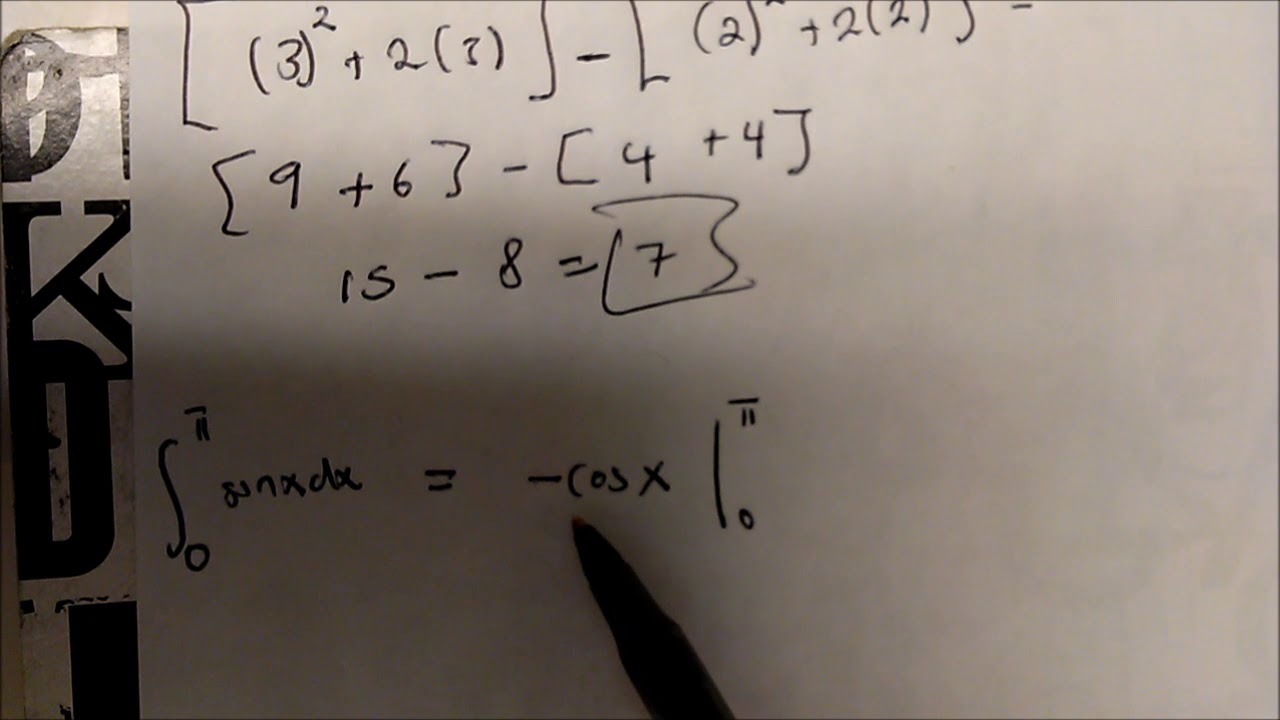 [(3)² + 2(3)] - [(2)² + 2(2)] -
[9 + 6] - [4 + 4]
15 - 8 = [7]
∫₀^π sinx dx = -cosx |₀^π
K
D